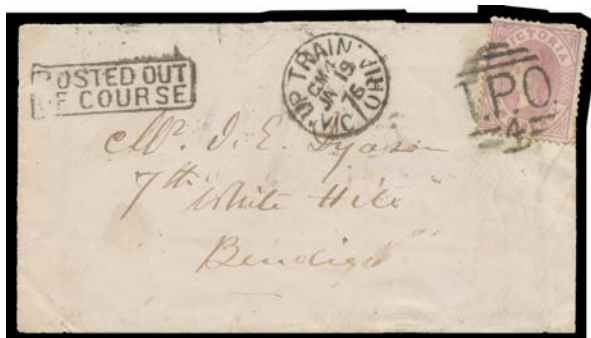 POSTED OUT
OF COURSE
UP TRAIN
CM4
JA 19
76
VIC
VICTORIA
T.P.O.
4
Mr. J. E. Dyason
7th White Hill
Bendigo